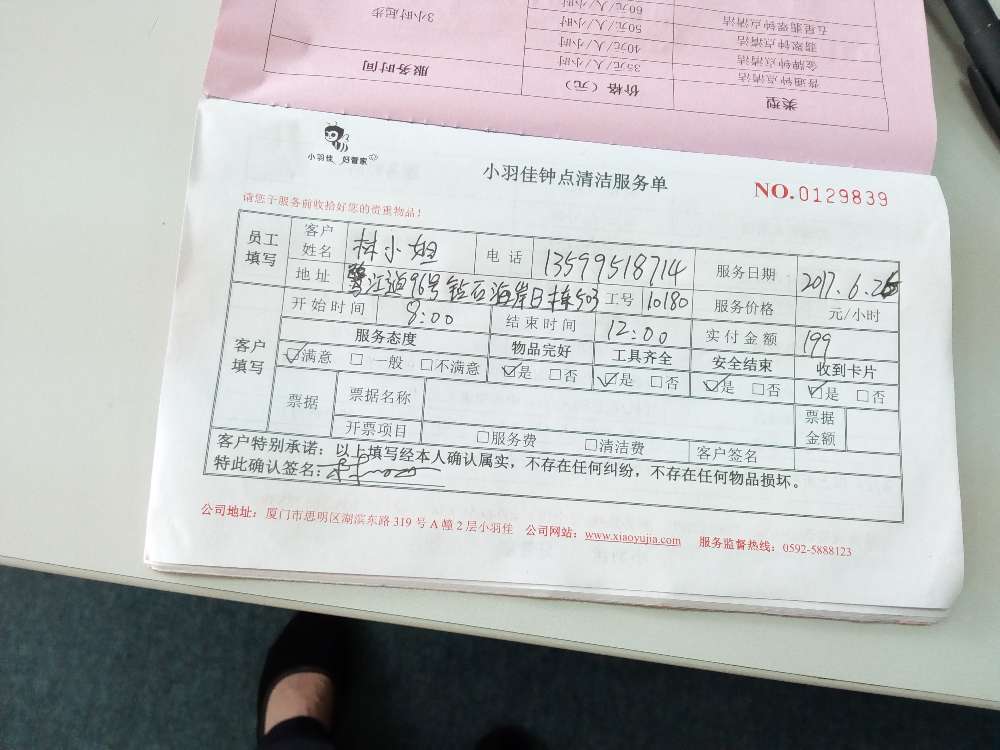 3小时起步
60元/人/小时
五星翡翠钟点清洁 50元/人/小时
翡翠钟点清洁 40元/人/小时
金牌钟点清洁 35元/人/小时
普通钟点清洁
类型 价格（元） 服务时间
小羽佳 好管家
小羽佳钟点清洁服务单
NO.0129839
请您于服务前收拾好您的贵重物品!
员工填写 客户姓名 林小姐 电话 13599518714 服务日期 2017.6.26
地址 鹭江道96号钻石海岸B栋503 工号 10180 服务价格 元/小时
客户填写 开始时间 8:00 结束时间 12:00 实付金额 199
服务态度 物品完好 工具齐全 安全结束 收到卡片
☑满意 □一般 □不满意 ☑是 □否 ☑是 □否 ☑是 □否 ☑是 □否
票据 票据名称 票据金额
开票项目 □服务费 □清洁费 客户签名
客户特别承诺：以上填写经本人确认属实，不存在任何纠纷，不存在任何物品损坏。
特此确认签名：
公司地址：厦门市思明区湖滨东路 319 号 A 幢 2 层小羽佳 公司网站：www.xiaoyujia.com 服务监督热线：0592-5888123